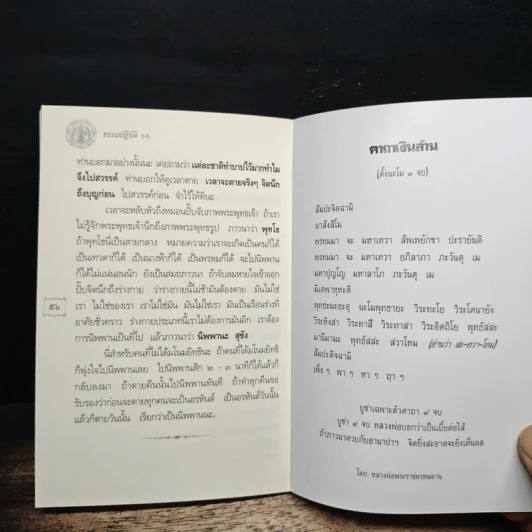 ธรรมปฏิบัติ ๖๖
ท่านบอกมาอย่างนั้นนะ เคยถามว่า แต่ละชาติทำบาปไว้มากทำไม
จึงไปสวรรค์ ท่านบอกให้ดูเวลาตาย เวลาจะตายจริงๆ จิตนึก
ถึงบุญก่อน ไปสวรรค์ก่อน จำไว้ให้ดีนะ
เวลาจะหลับหัวถึงหมอนปั๊บจับภาพพระพุทธเจ้า ถ้าเรา
ไม่รู้จักพระพุทธเจ้านึกถึงภาพพระพุทธรูป ภาวนาว่า พุทโธ
ถ้าพุทโธนี่เป็นสายกลาง หมายความว่าเราจะเกิดเป็นคนก็ได้
เป็นเทวดาก็ได้ เป็นนางฟ้าก็ได้ เป็นพรหมก็ได้ จะไปนิพพาน
ก็ได้ไม่แน่นอนนัก ยังเป็นสมถภาวนา ถ้าจับลมหายใจเข้าออก
ปั๊บจิตนึกถึงร่างกาย ว่าร่างกายนี้ไม่ช้ามันต้องตาย มันไม่ใช่
เรา ไม่ใช่ของเรา เราไม่ใช่มัน มันไม่ใช่เรา มันเป็นเรือนร่างที่
อาศัยชั่วคราว ร่างกายประเภทนี้เราไม่ต้องการมันอีก เราต้อง
การนิพพานเป็นที่ไป แล้วภาวนาว่า นิพพานะ สุขัง
นี่สำหรับคนที่ไม่ได้มโนมยิทธินะ ถ้าคนที่ได้มโนมยิทธิ
ก็พุ่งใจไปนิพพานเลย ไปนิพพานสัก ๒ - ๓ นาทีก็ได้แล้วก็
กลับลงมา ถ้าตายคืนนั้นไปนิพพานทันที ถ้าทำทุกคืนขอ
รับรองว่าก่อนจะตายทุกคนจะเป็นอรหันต์ เป็นอรหันต์วันนั้น
แล้วก็ตายวันนั้น เรียกว่าเป็นนิพพานนะ
๕๖
คาถาเงินล้าน
(ตั้งนะโม ๓ จบ)
สัมปะจิตฉามิ
นาสังสิโม
พรหมมา จะ มหาเทวา สัพเพยักขา ปะรายันติ
พรหมมา จะ มหาเทวา อภิลาภา ภะวันตุ เม
มหาปุญโญ มหาลาโภ ภะวันตุ เม
มิเตพาหุหะติ
พุทธะมะอะอุ นะโมพุทธายะ วิระทะโย วิระโคนายัง
วิระหิงสา วิระทาสี วิระทาสา วิระอิตถิโย พุทธัสสะ
มานีมามะ พุทธัสสะ สวาโหม (อ่านว่า สะ-หวา-โหม)
สัมปะติจฉามิ
เพ็ง ๆ พา ๆ หา ๆ ฤา ๆ
บูชาเฉพาะตัวคาถา ๙ จบ
บูชา ๙ จบ หลวงพ่อบอกว่าเป็นเบี้ยต่อไส้
ถ้าภาวนาควบกับอานาปาฯ จิตยิ่งสะอาดจะยิ่งเห็นผล
โดย หลวงพ่อพระราชพรหมยาน